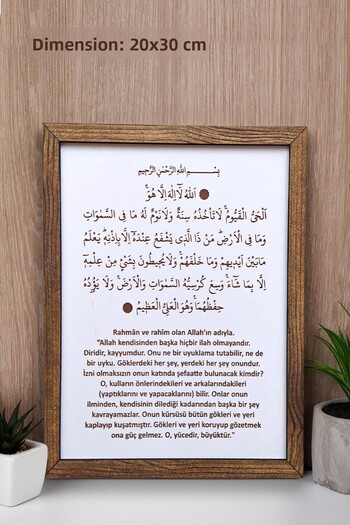 Dimension: 20x30 cm
بِسْمِ اللهِ الرَّحْمٰنِ الرَّحِيمِ
اَللهُ لَا اِلٰهَ اِلَّا هُوَۚ
اَلْحَىُّ الْقَيُّومُۚ لَا تَأْخُذُهُ سِنَةٌ وَلَا نَوْمٌ لَهُ مَا فِى السَّمٰوَاتِ
وَمَا فِى الْاَرْضِۜ مَنْ ذَا الَّذِى يَشْفَعُ عِنْدَهُٓ اِلَّا بِاِذْنِهِۜ يَعْلَمُ
مَا بَيْنَ اَيْدِيهِمْ وَمَا خَلْفَهُمْۚ وَلَا يُحِيطُونَ بِشَىْءٍ مِنْ عِلْمِهِٓ
اِلَّا بِمَا شَٓاءَۚ وَسِعَ كُرْسِيُّهُ السَّمٰوَاتِ وَالْاَرْضَۚ وَلَا يَؤُدُهُ
حِفْظُهُمَاۚ وَهُوَ الْعَلِىُّ الْعَظِيمُ
Rahmân ve rahîm olan Allah'ın adıyla.
"Allah kendisinden başka hiçbir ilah olmayandır.
Diridir, kayyumdur. Onu ne bir uyuklama tutabilir, ne de
bir uyku. Göklerdeki her şey, yerdeki her şey onundur.
İzni olmaksızın onun katında şefaatte bulunacak kimdir?
O, kulların önlerindekileri ve arkalarındakileri
(yaptıklarını ve yapacaklarını) bilir. Onlar onun
ilminden, kendisinin dilediği kadarından başka bir şey
kavrayamazlar. Onun kürsüsü bütün gökleri ve yeri
kaplayıp kuşatmıştır. Gökleri ve yeri koruyup gözetmek
ona güç gelmez. O, yücedir, büyüktür."